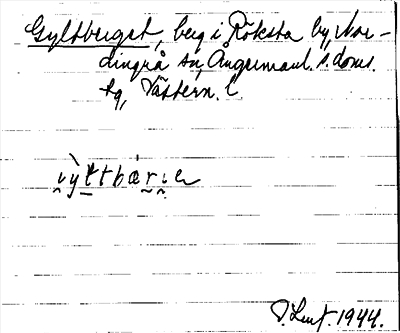 Gyltberget, berg i Röksta by, Nor-
dingrå sn, Ångermanl. s. doms.
tg, Västern. l
T. Lunf. 1944.